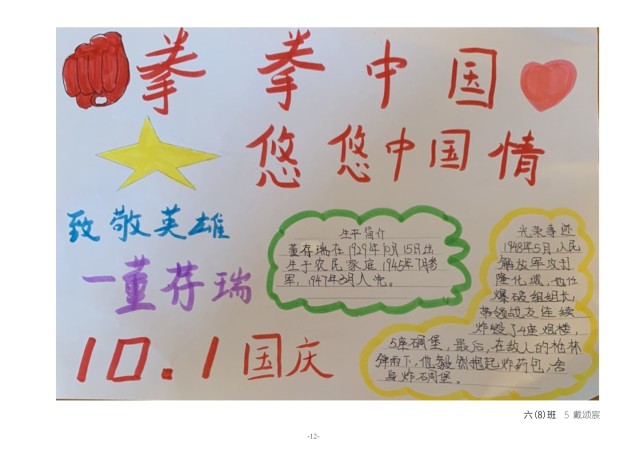 拳 拳 中 国
悠 悠 中国 情
致敬英雄
一董存瑞
10.1国庆
生平简介
董存瑞在1929年10月15日出
生于农民家庭1945年7月参
军，1947年3月入党。
光荣事迹
1948年5月，人民
解放军攻打
隆化城，他任
爆破组组长，
带领战友连续
炸毁了4座炮楼，
5座碉堡，最后，在敌人的枪林
弹雨下，他毅然抱起炸药包，舍
身炸碉堡。
六(8)班 5 戴颂宸
-12-